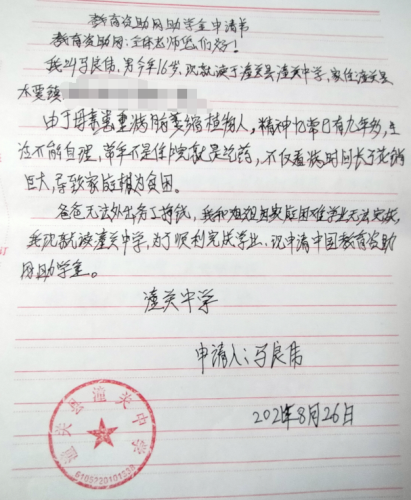 教育资助网助学金申请书
教育资助网:全体老师您们好!
我叫马良伟,男今年16岁,现就读于潼关县潼关中学,家住潼关县
太要镇
由于母亲患重病脑萎缩植物人,精神尤常已有九年多,生
活不能自理,常年不是住院就是吃药,不仅看病时间长于花销
巨大,导致家庭极为贫困。
爸爸无法外出务工挣钱,我和姐姐因家庭困难学业无法完成,
我现就读潼关中学,为了顺利完成学业,现申请中国教育资助
网助学金。
潼关中学
申请人:马良伟
2021年8月26日
潼关县潼关中学